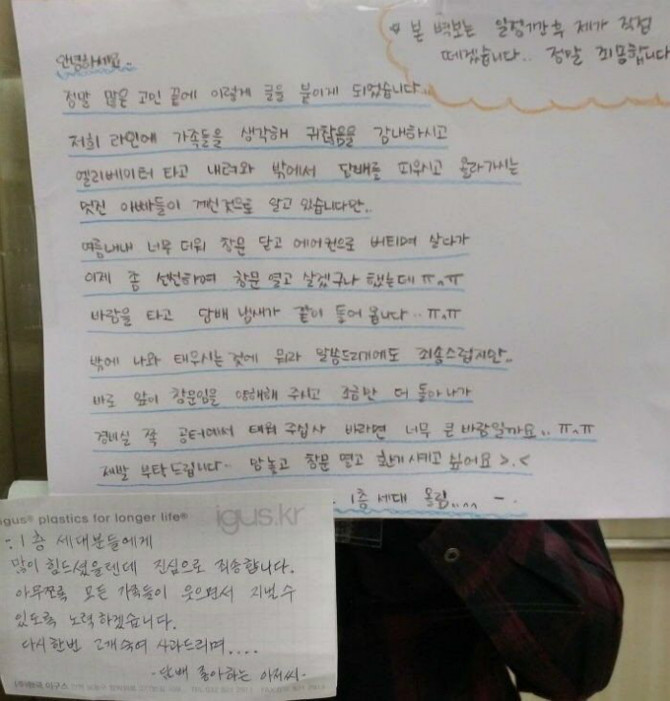 * 본 벽보는 일정기간 후 제가 직접
떼겠습니다.. 정말 죄송합니다
안녕하세요..
정말 많은 고민 끝에 이렇게 글을 붙이게 되었습니다..
저희 라인에 가족들을 생각해 귀찮음을 감내하시고
엘리베이터 타고 내려와 밖에서 담배를 피우시고 올라가시는
멋진 아빠들이 계신것으로 알고 있습니다만..
여름내내 너무 더워 창문 닫고 에어컨으로 버티며 살다가
이제 좀 선선하여 창문 열고 살겠구나 했는데 ㅠ.ㅠ
바람을 타고 담배 냄새가 같이 들어 옵니다.. ㅠ.ㅠ
밖에 나와 태우시는 것에 뭐라 말씀드리기에도 죄송스럽지만..
바로 앞이 창문임을 양해해 주시고 조금만 더 돌아 나가
경비실 쪽 공터에서 태워 주십사 바라면 너무 큰 바람일까요.. ㅠ.ㅠ
제발 부탁드립니다.. 맘놓고 창문 열고 환기 시키고 싶어요 >.<
1층 세대 올림.... -.
igus® plastics for longer life® igus.kr
:1층 세대분들에게
많이 힘드셨을텐데 진심으로 죄송합니다.
아무쪼록 모든 가족들이 웃으면서 지낼 수
있도록 노력하겠습니다.
다시한번 고개숙여 사과드리며....
-담배 좋아하는 아저씨-
(주)한국 이구스